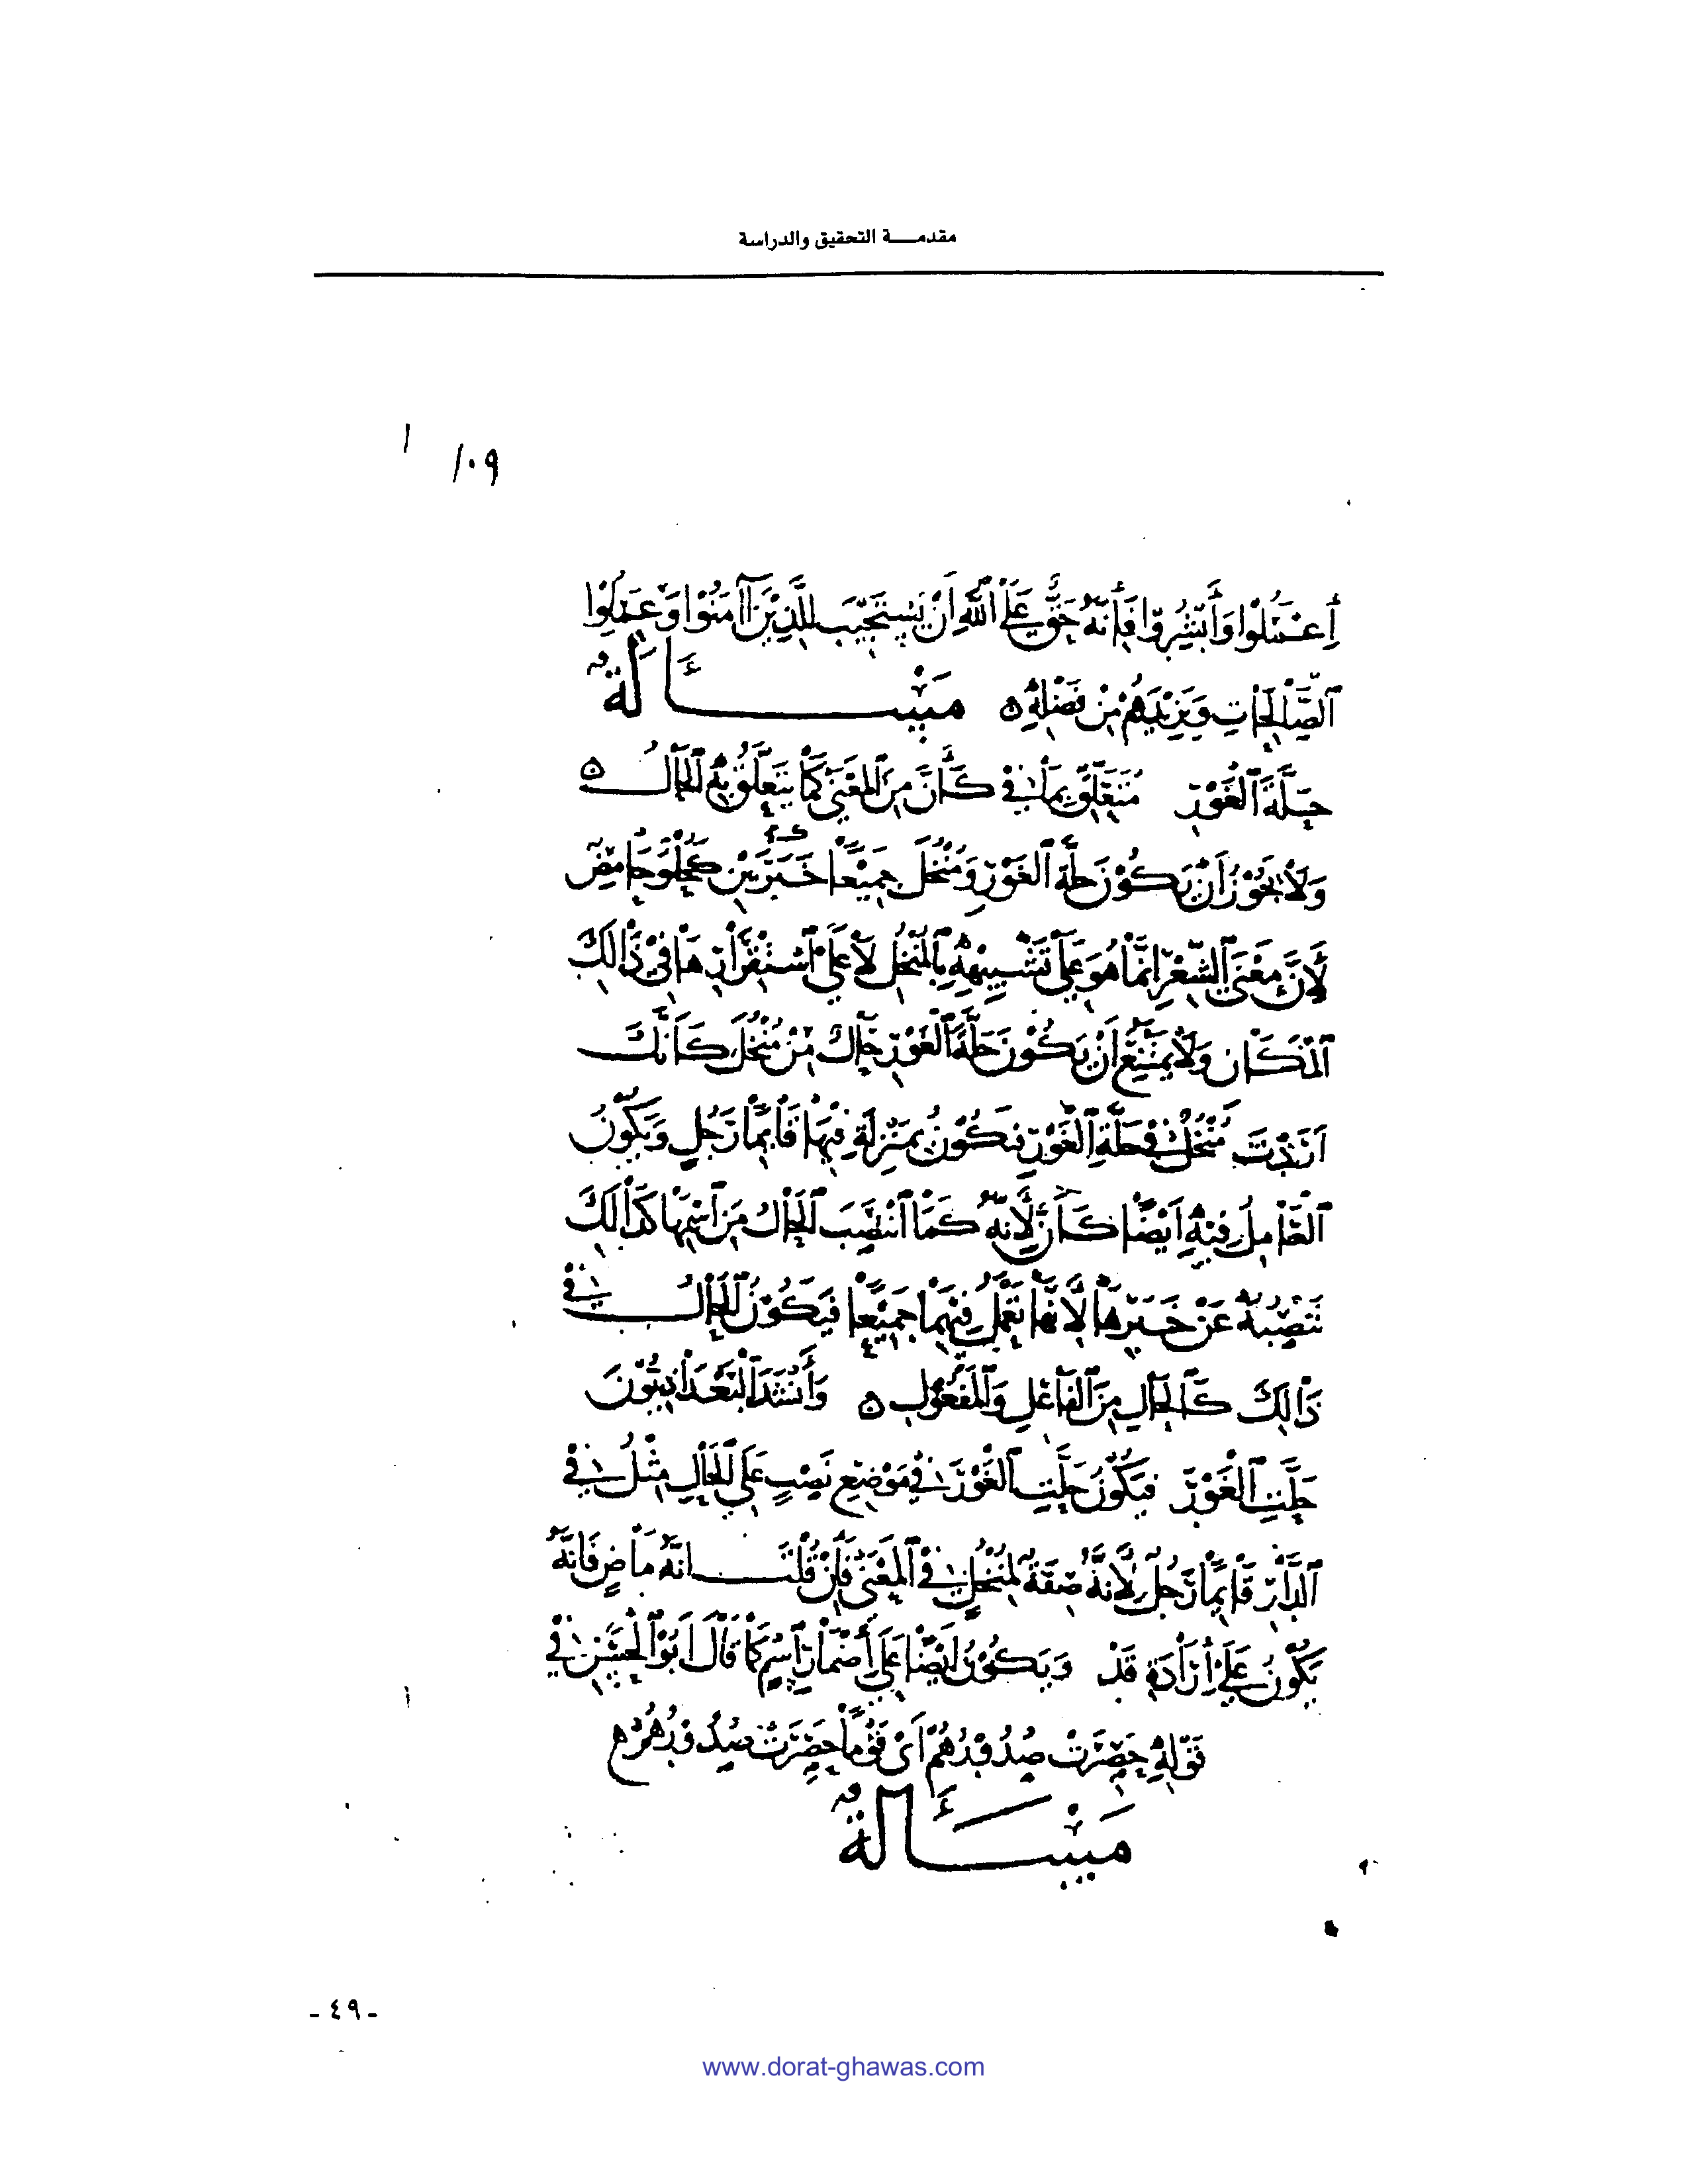 مقدمـــة التحقيق والدراسة
١٠٩
أَعْمَلُوا وَأَبْشِرُوا فَإِنَّهُ حَقٌّ عَلَى اللَّهِ أَنْ يَسْتَجِيبَ لِلَّذِينَ آمَنُوا وَعَمِلُوا
الصَّالِحَاتِ وَيَزِيدَهُمْ مِنْ فَضْلِهِ ه مَسْـــأَلَةٌ
حِلَّةَ الْغَوْرِ مُتَعَلِّقٌ بِمَا فِي كَأَنَّ مِنَ الْمَعْنَى كَمَا يَتَعَلَّقُ بِهِ الْحَالُ ه
وَلَا يَجُوزُ أَنْ يَكُونَ حِلَّةَ الْغَوْرِ وَمُنْخُلُ جَمِيعًا خَبَرَيْنِ كَحُلْوٍ حَامِضٍ
لِأَنَّ مَعْنَى الشِّعْرِ إِنَّمَا هُوَ عَلَى تَشْبِيهِهِ بِالْمُنْخُلِ لَا عَلَى اسْتِقْرَارِهَا فِي ذَالِكَ
الْمَكَانِ وَلَا يَمْتَنِعُ أَنْ يَكُونَ حِلَّةَ الْغَوْرِ حَالٌ مِنْ مُنْخُلٍ كَأَنَّكَ
أَرَدْتَ مُنْخُلٌ فِي حِلَّةِ الْغَوْرِ فَيَكُونُ بِمَنْزِلَةِ فِيهَا قَائِمًا رَجُلٌ وَيَكُونُ
الْعَامِلُ فِيهِ أَيْضًا كَأَنَّ لِأَنَّهُ كَمَا انْتَصَبَ الْحَالُ مِنَ اسْمِهَا كَذَالِكَ
تَنْصِبُهُ عَنْ خَبَرِهَا لِأَنَّهَا تَعْمَلُ فِيهِمَا جَمِيعًا فَيَكُونُ الْحَالُ فِي
ذَالِكَ كَالْحَالِ مِنَ الْفَاعِلِ وَالْمَفْعُولِ ه وَأَنْشَدَ الْبَغْدَاذِيُّونَ
حَلَّتِ الْغَوْرَ فَيَكُونُ حَلَّتِ الْغَوْرَ فِي مَوْضِعِ نَصْبٍ عَلَى الْحَالِ مِثْلُ فِي
الدَّارِ قَائِمًا رَجُلٌ لِأَنَّهُ صِفَةٌ لِمُنْخُلٍ فِي الْمَعْنَى فَإِنْ قُلْتَ إِنَّهُ مَاضٍ فَإِنَّهُ
يَكُونُ عَلَى إِرَادَةِ قَدْ وَيَكُونُ أَيْضًا عَلَى إِضْمَارِ اسْمٍ كَمَا قَالَ أَبُو الْحَسَنِ فِي
قَوْلِهِ حَصِرَتْ صُدُورُهُمْ أَيْ قَوْمًا حَصِرَتْ صُدُورُهُمْ ه
مَسْـــأَلَةٌ
- ٤٩ -
www.dorat-ghawas.com